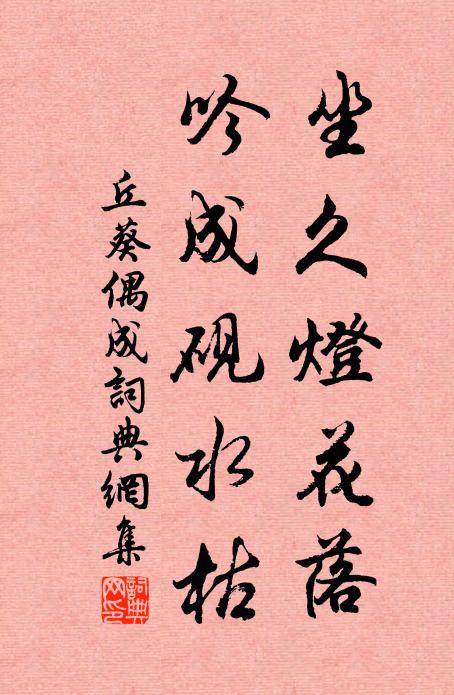 坐久燈花落
吟成硯水枯
丘葵偶成詞典網集
詞典
网印